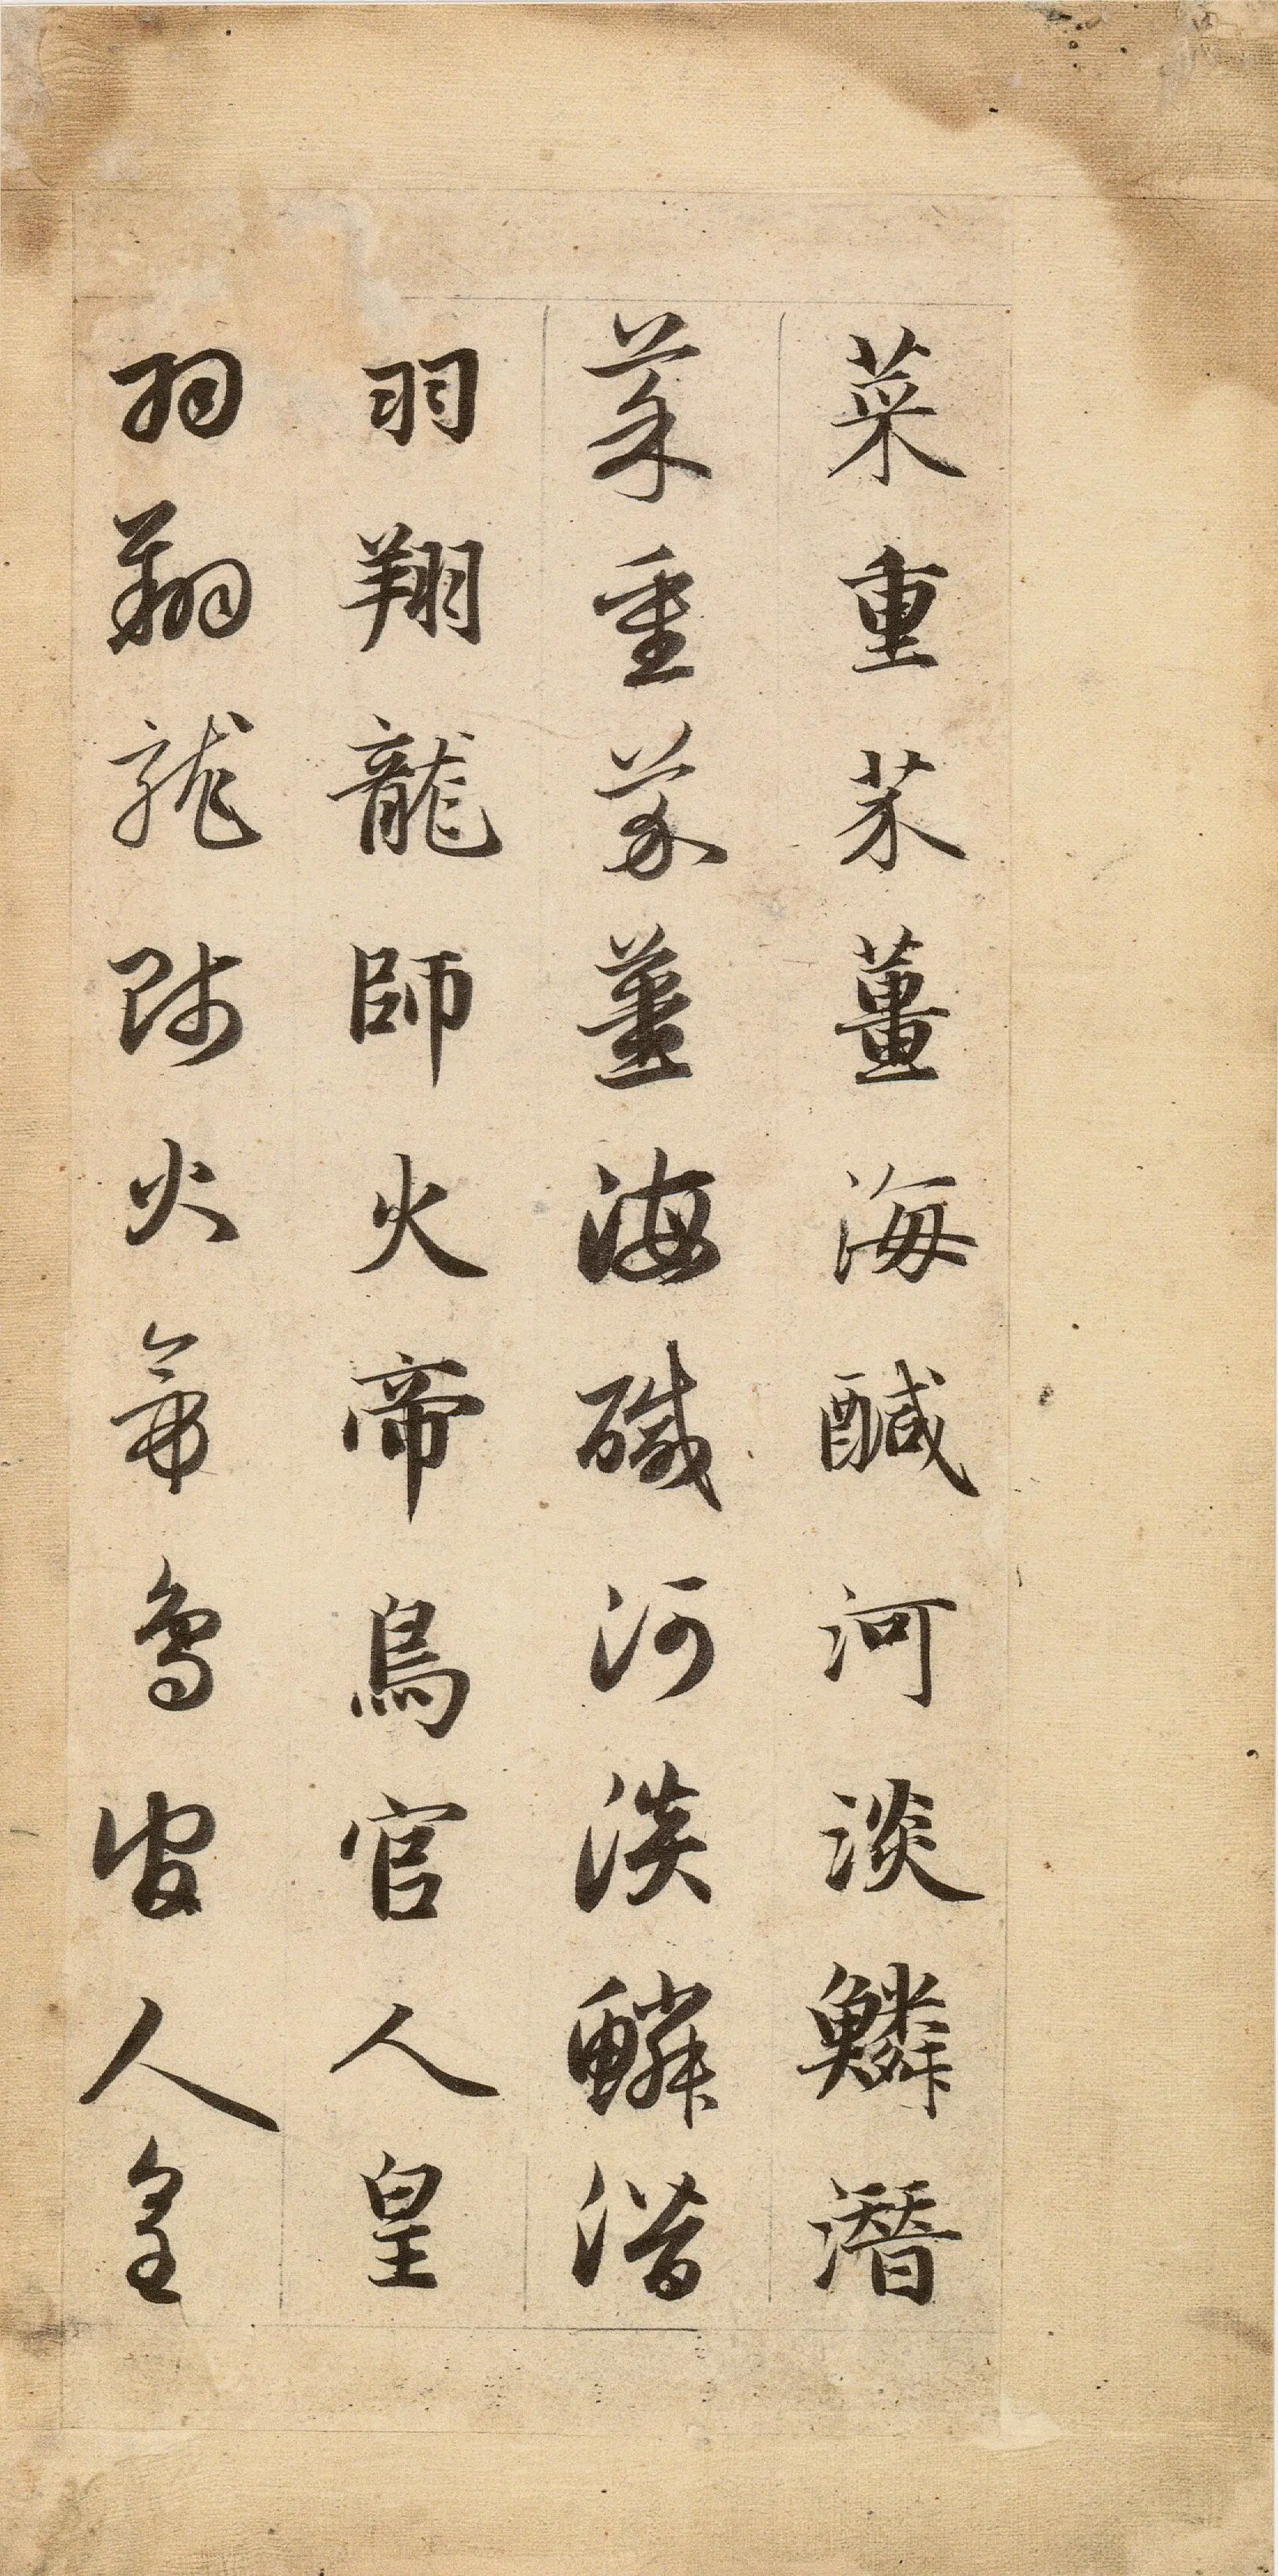 菜重芥薑海醎河淡鱗潛
菜重芥薑海醎河淡鱗潛
羽翔龍師火帝鳥官人皇
羽翔龍師火帝鳥官人皇